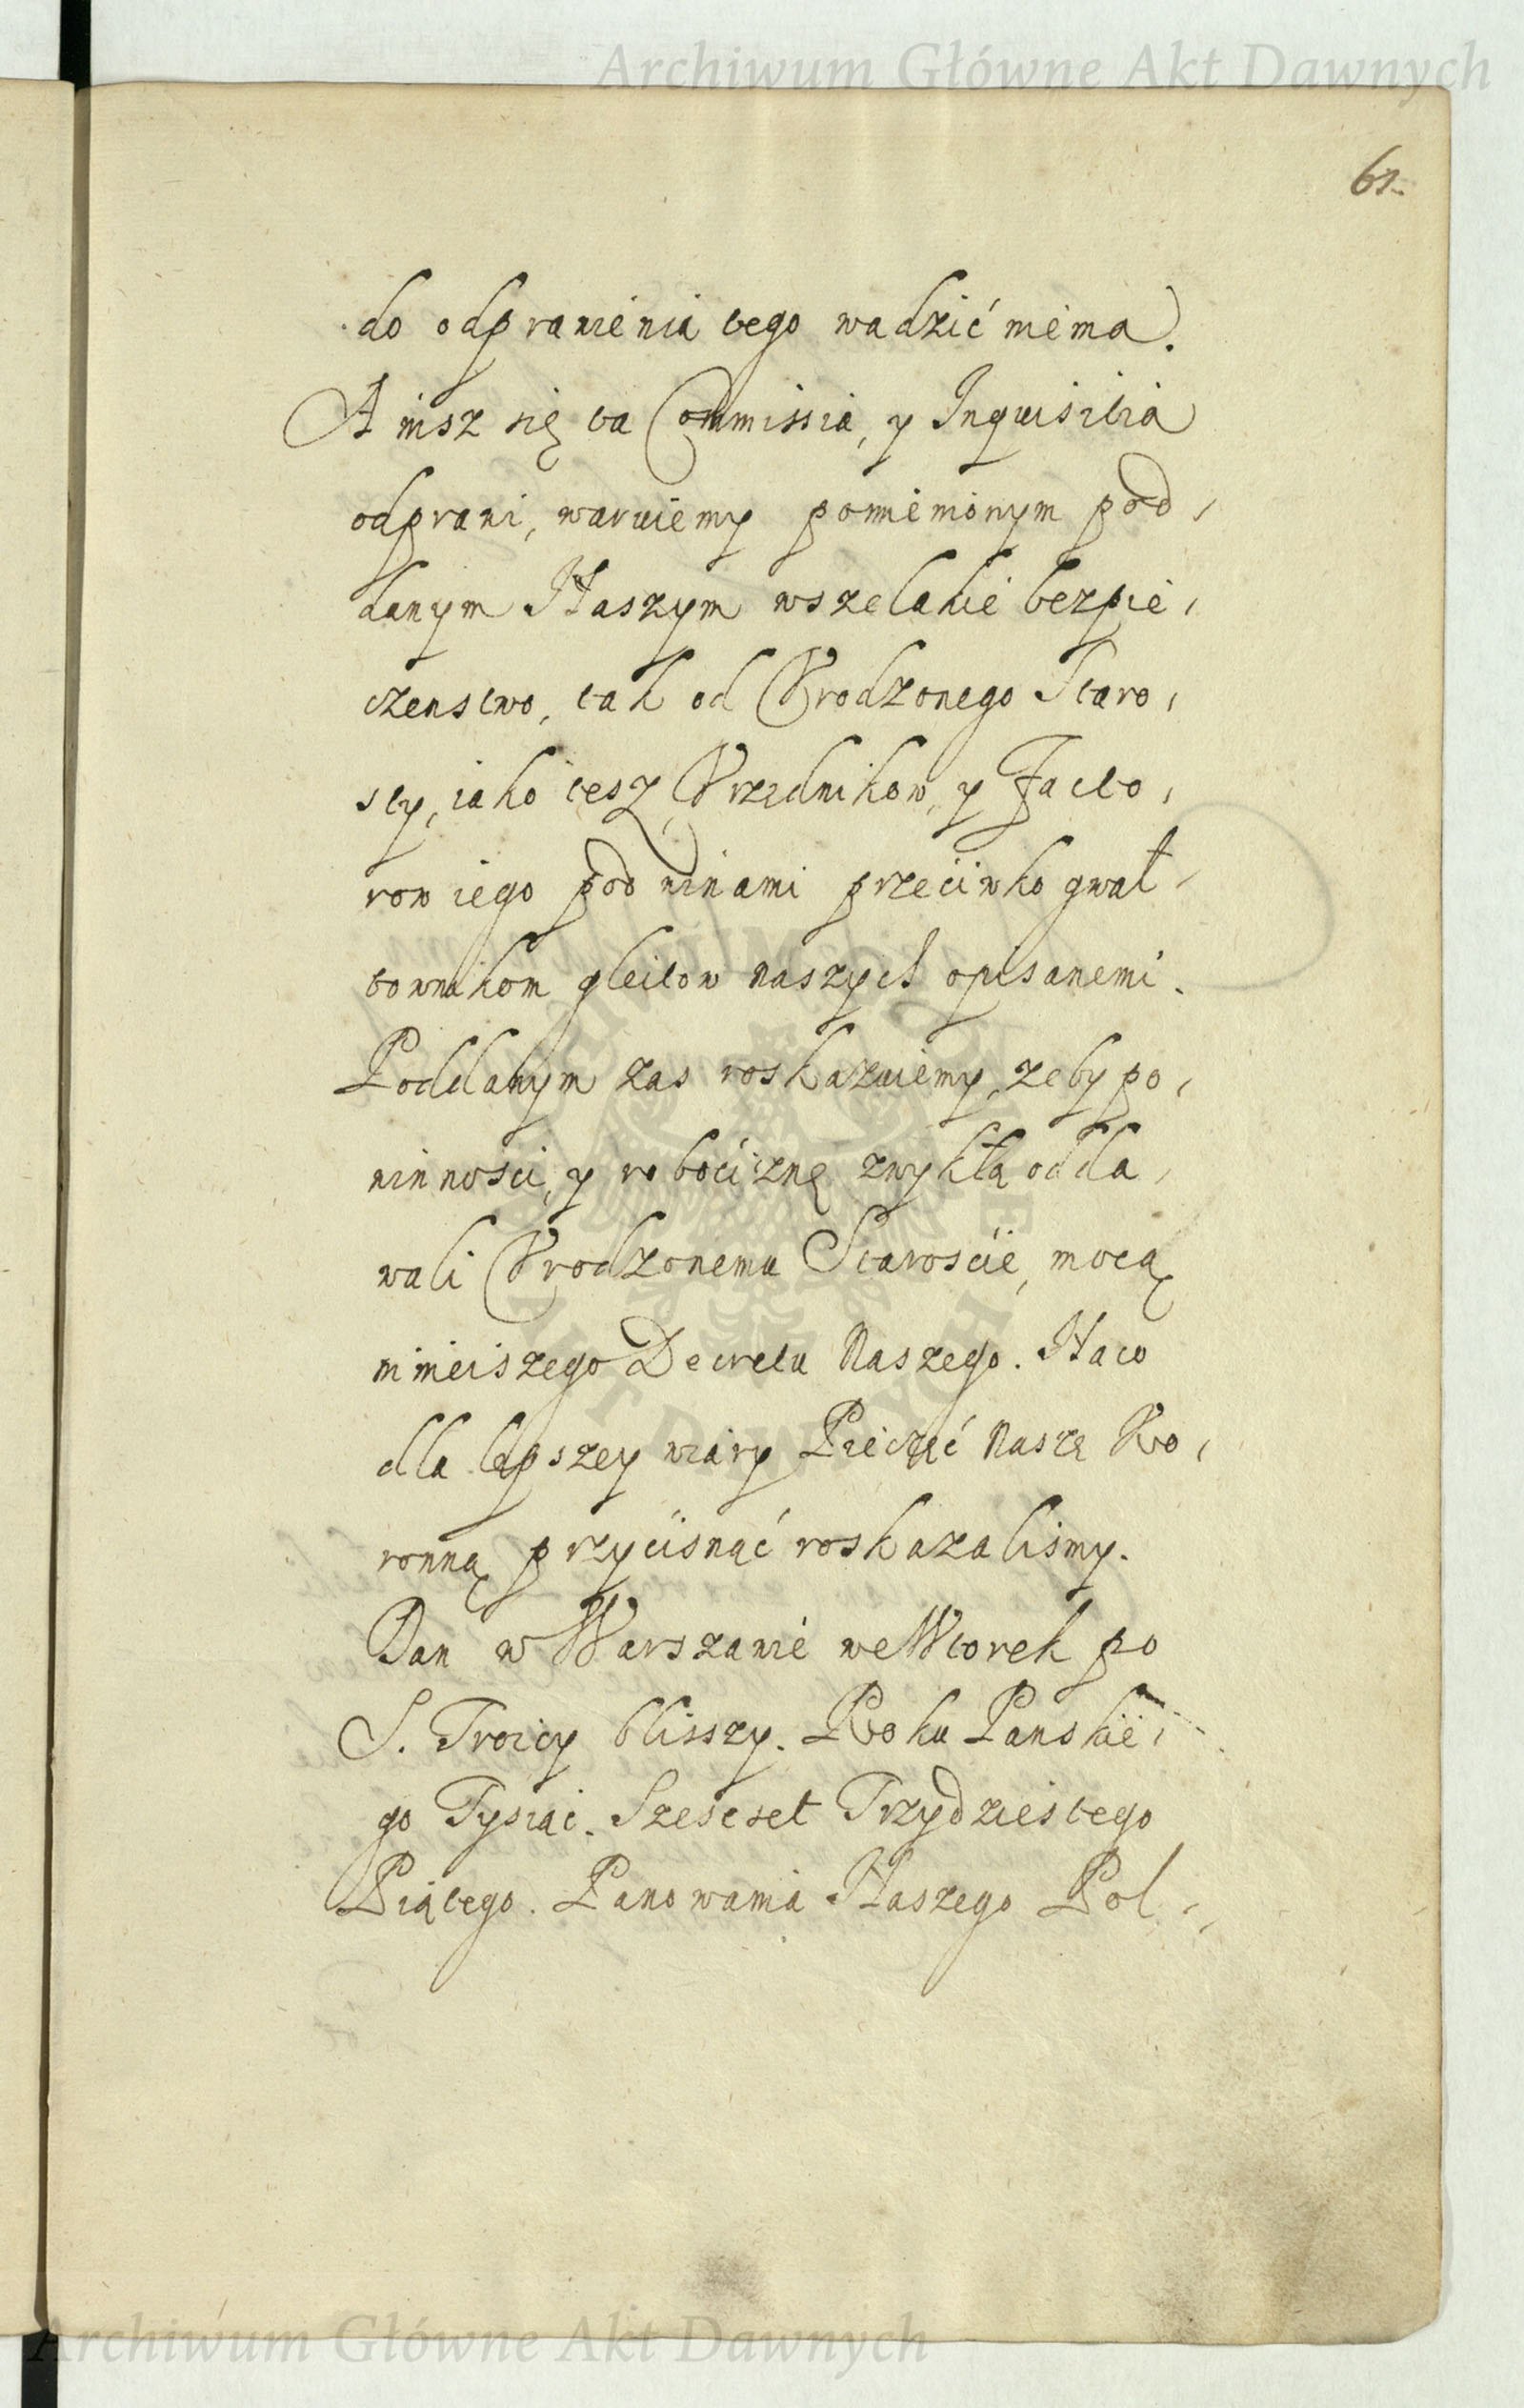 Archiwum Główne Akt Dawnych
61.
do odprawienia tego wadzić niema.
A nisz się ta Commissia, y Inquisitia
odprawi, waruiemy pomienionym pod,
danym Naszym wszelakie bezpie,
czenstwo, tak od Vrodzonego Staro,
sty, iako tesz Vrzędnikow, y Facto,
row iego pod winami przeciwko gwał,
townikom gleitow naszych opisanemi.
Poddanym zas roskazuiemy, zeby po,
winności, y robociznę zwykłą odda,
wali Vrodzonemu Starosćie, mocą
ninieiszego Decretu Naszego. Na co
dla lepszey wiary Pieczęć Naszą Ko,
ronną przycisnąć roskazaliśmy.
Dan w Warszawie we Wtorek po
S. Troicy blisszy. Roku Panskie,
go Tysiąc. Szescset Trzydziestego
Piątego. Panowania Naszego Pol,
ARCHIWUM GŁÓWNE
AKT DAWNYCH
Archiwum Główne Akt Dawnych